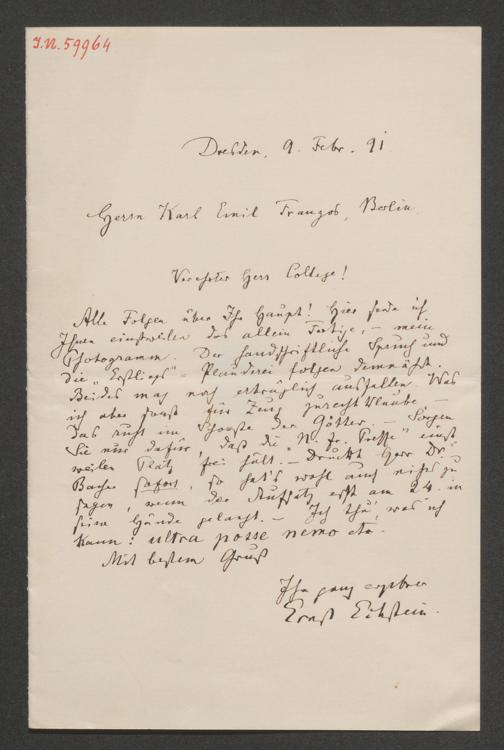 J.N. 59964
Dresden, 9. Febr. 91
Herrn Karl Emil Franzos, Berlin
Verehrter Herr College!
Alle Folgen über Ihr Haupt! Hier sende ich
Ihnen einstweilen das allein Fertige, – mein
Photogramm. Der handschriftliche Spruch und
die „Erstlings"-Plauderei folgen demnächst.
Beides mag noch erträglich ausfallen. Was
ich aber sonst für Zeug zurechtklaube –
das ruht im Schooße der Götter. – Sorgen
Sie nur dafür, daß die „N. Fr. Presse" einst
weilen Platz frei hält. – Druckt Herr Dr.
Bacher sofort, so hat's wohl auch nichts zu
sagen, wenn der Aufsatz erst am 24. in
seine Hände gelangt. – Ich thu', was ich
kann: ultra posse nemo etc.
Mit bestem Gruß
Ihr ganz ergebener
Ernst Eckstein.